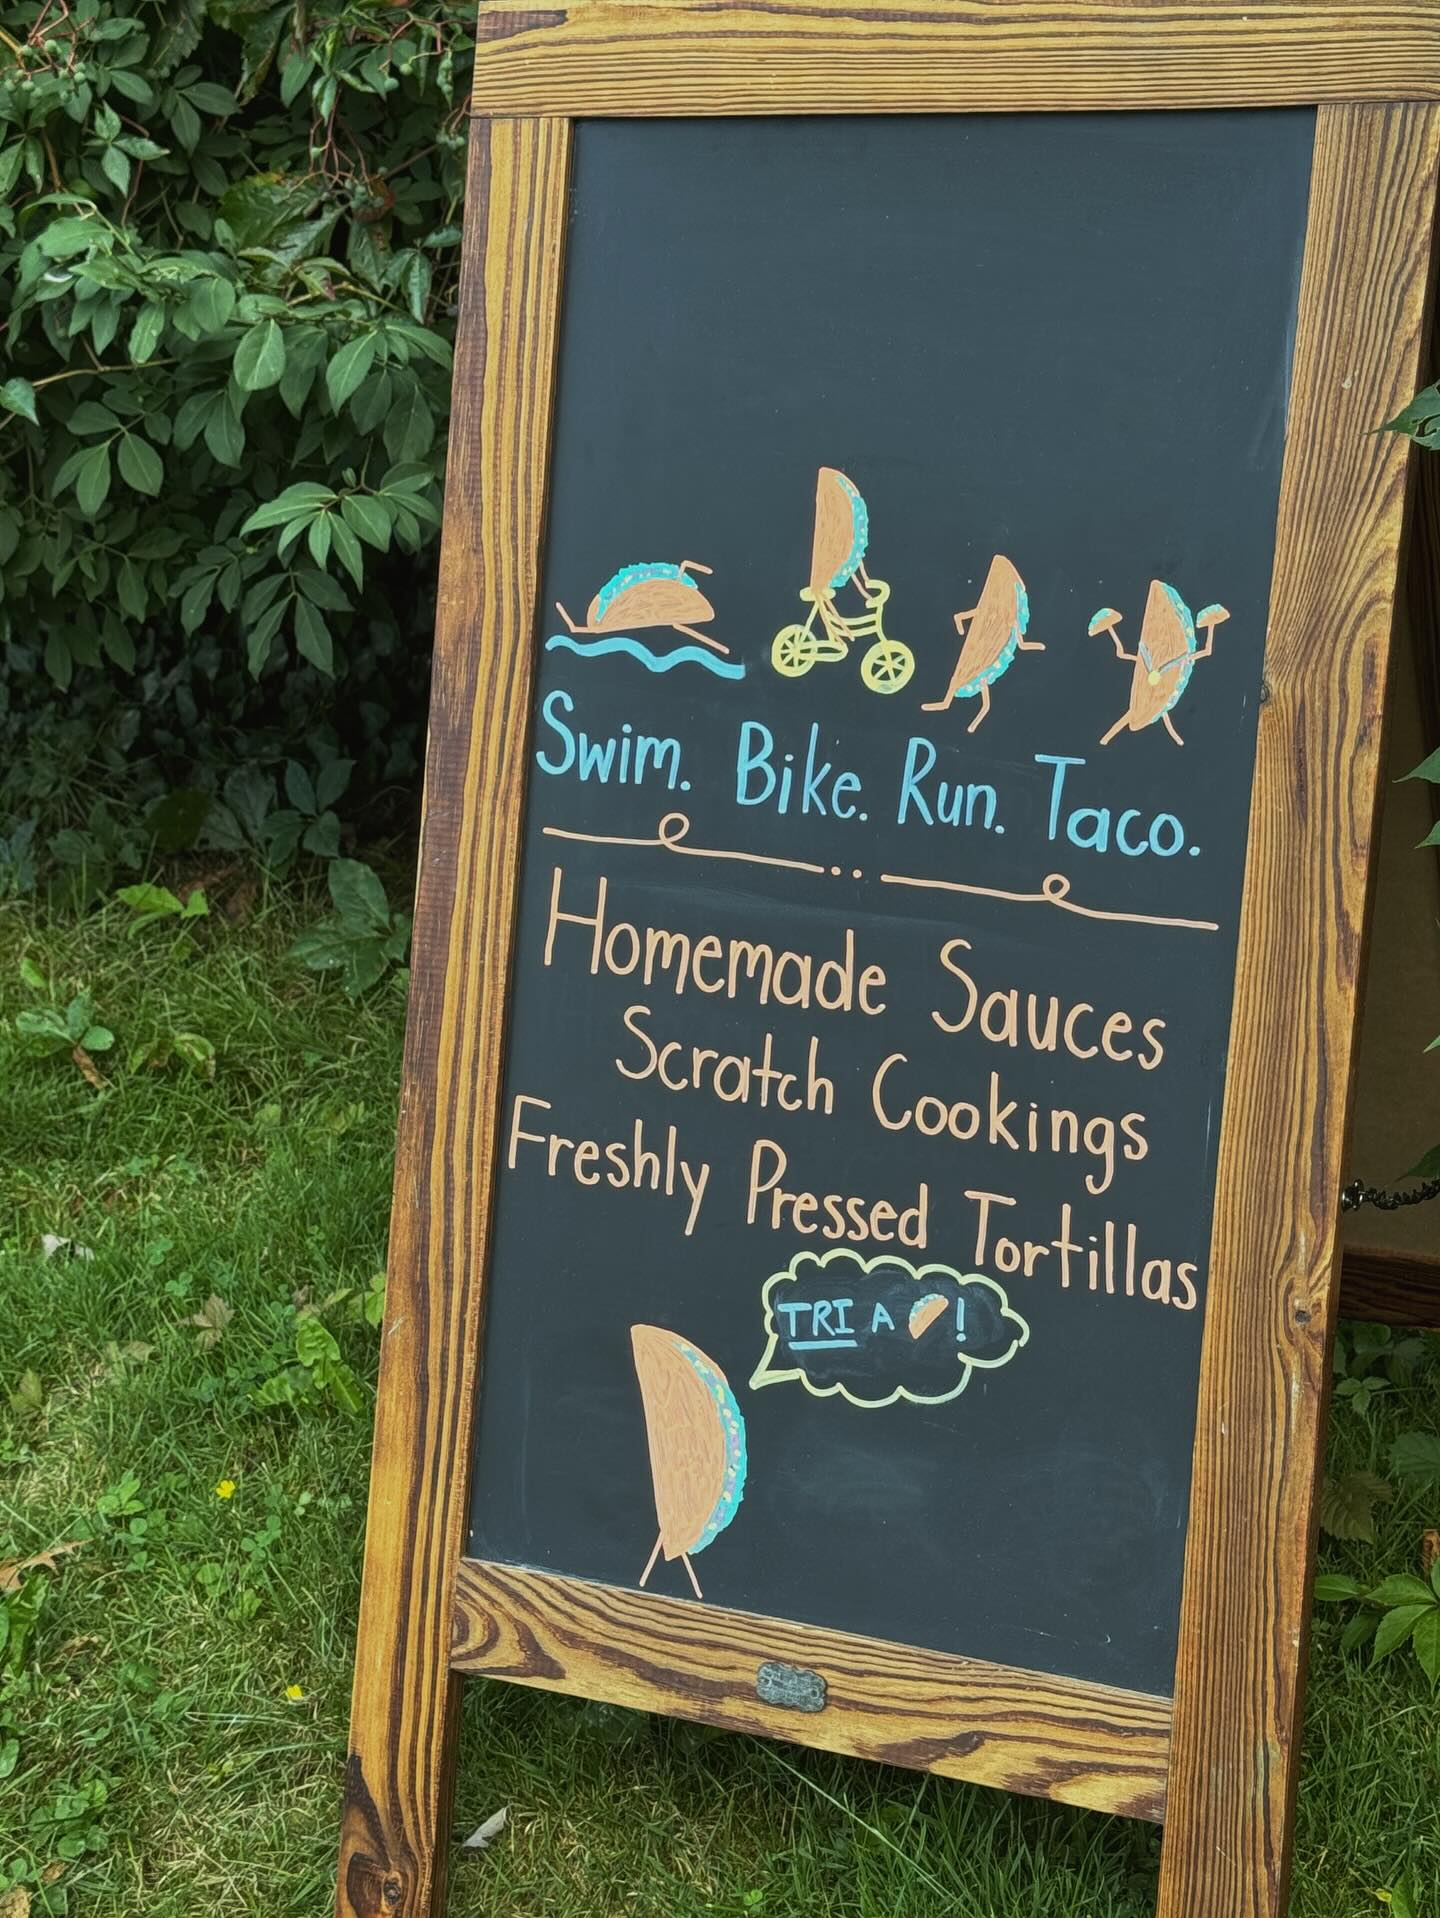 Swim. Bike. Run. Taco.
Homemade Sauces
Scratch Cookings
Freshly Pressed Tortillas
TRI A !